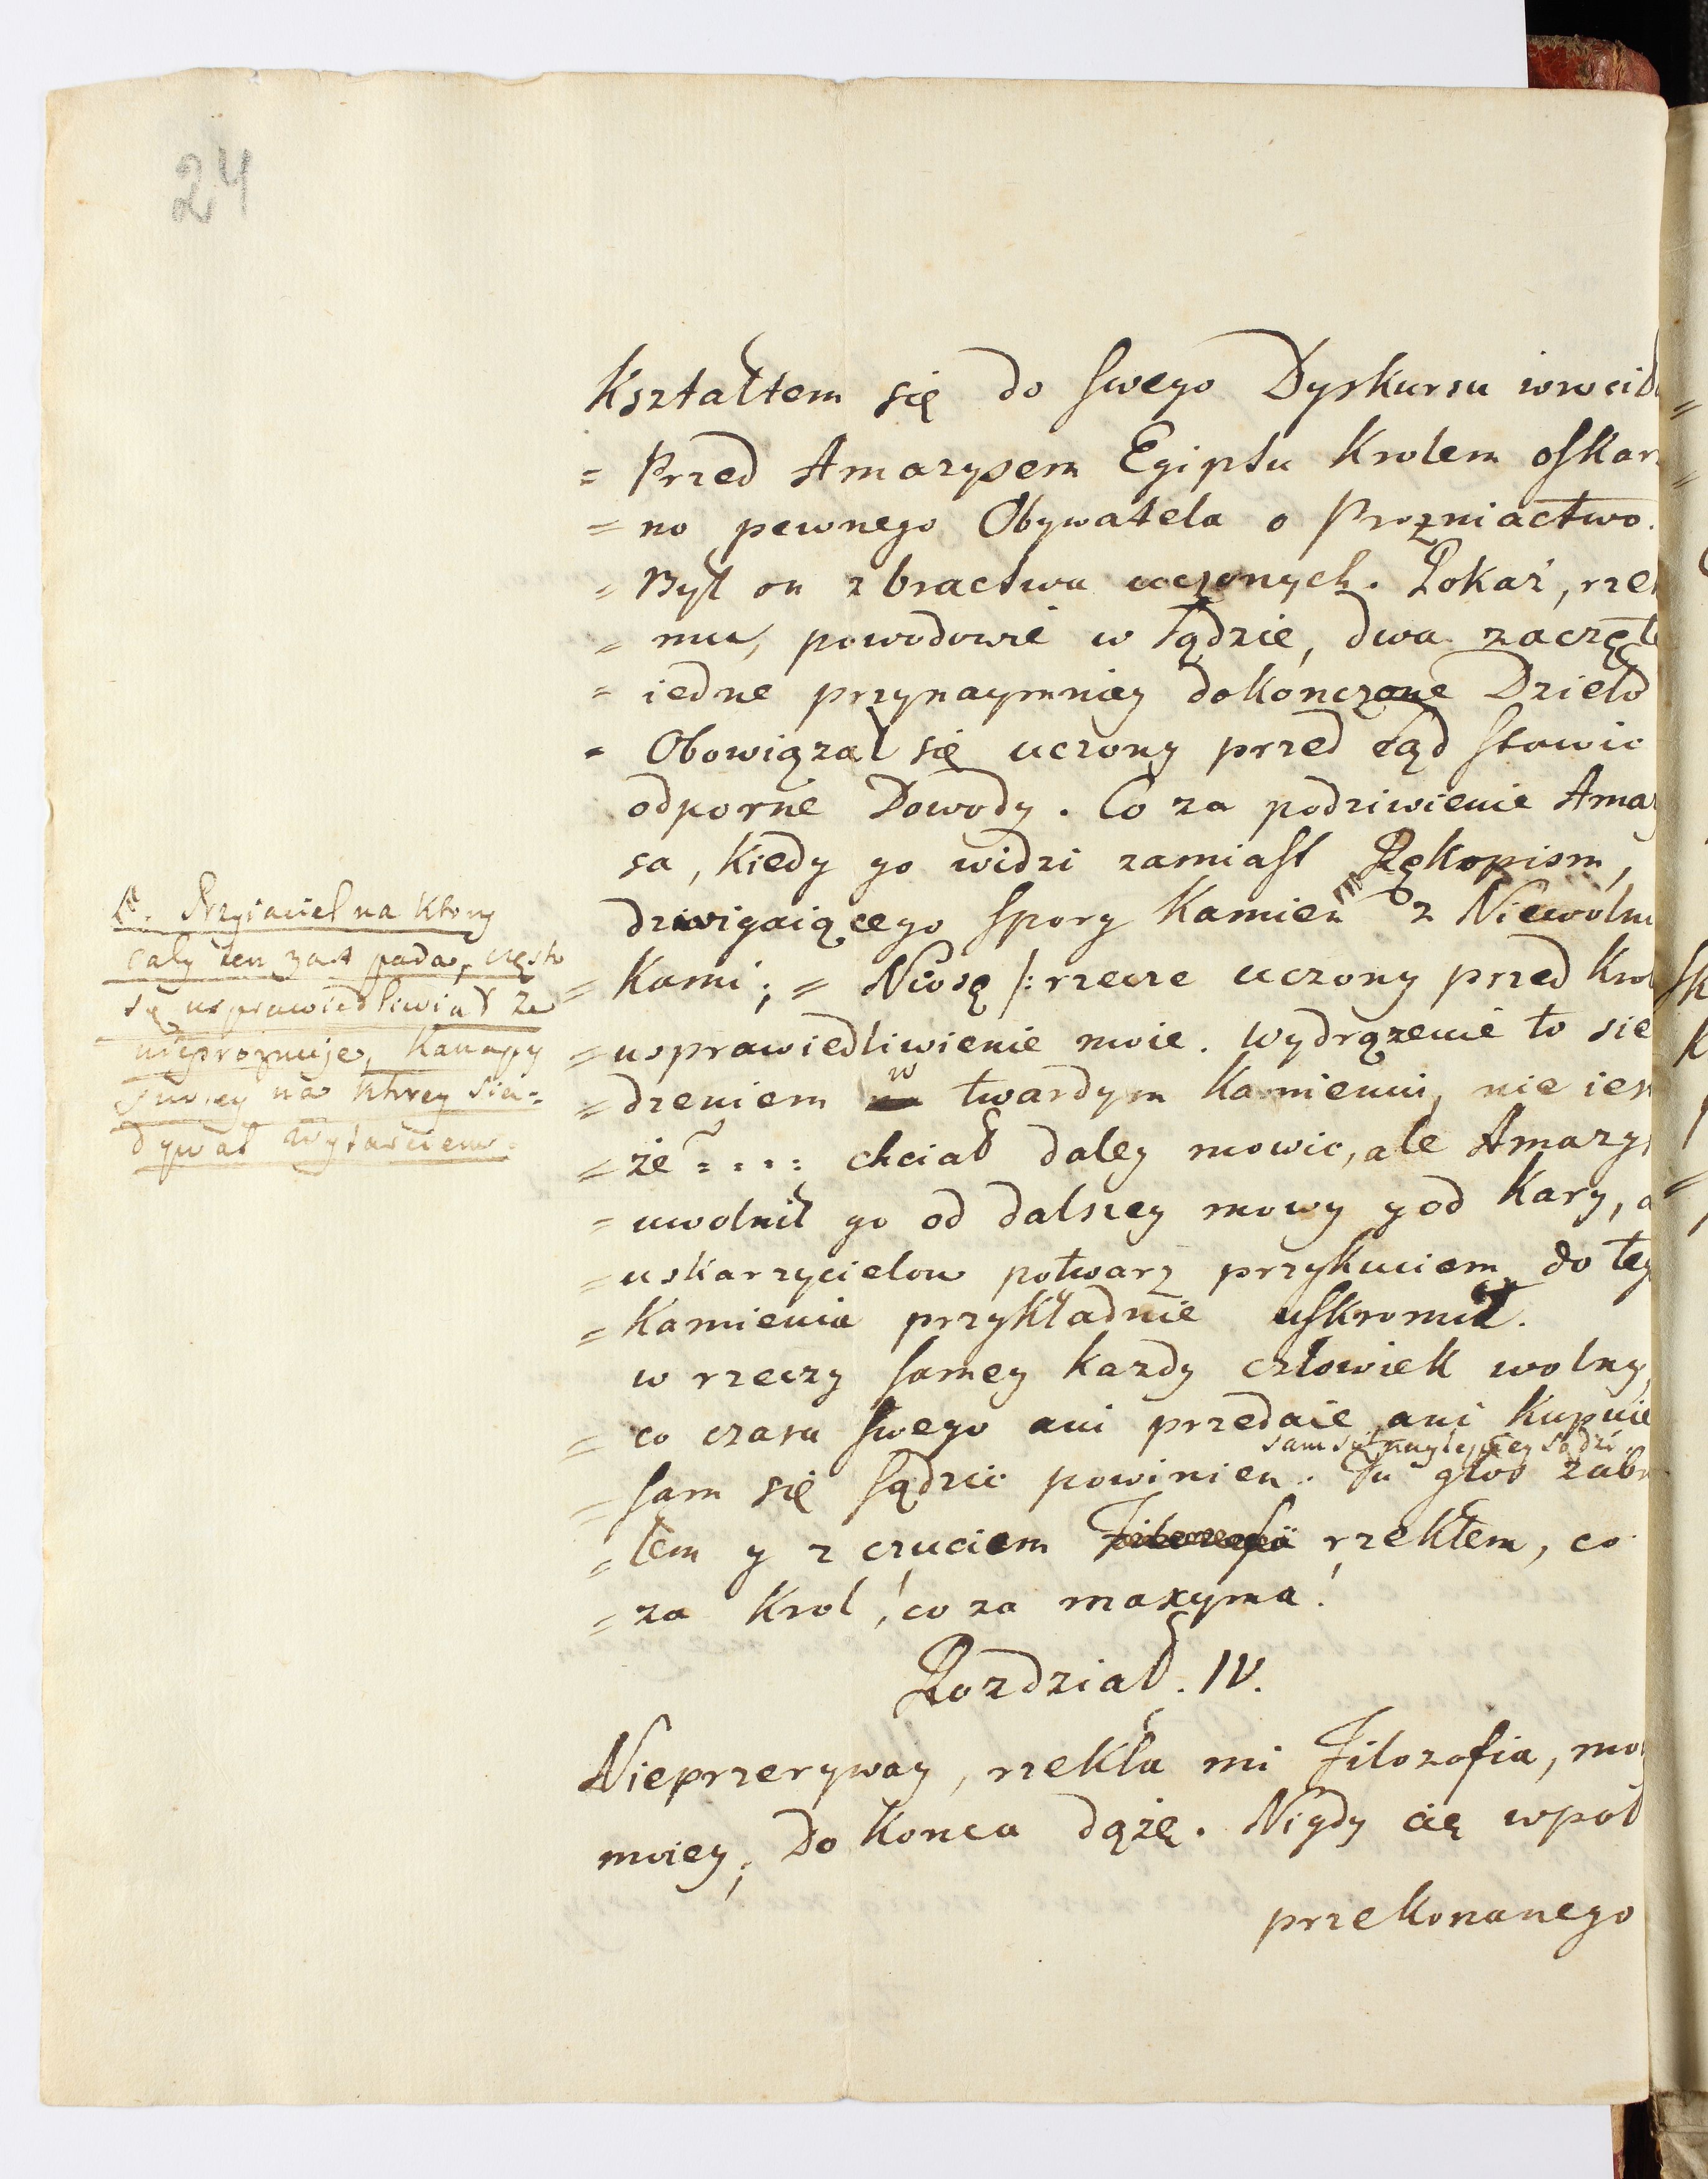 24
Kształtem się do swego Dyskursu
= Przed Amazysem Egiptu Krolem oskar
= no pewnego Obywatela o Prozniactwo.
= Był on z bractwa uczonych. Pokaż, rze
= mu, powodowie w sądzie, dwa zaczęte
= iedne przynaymniey dokonczone Dzieło
= Obowiązał się uczony przed sąd stawic
odporne Dowody. Co za podziwienie Ama
sa, Kiedy go widzi zamiast Rękopism,
dzwigaiącego spory Kamien z Niewolni
= Kami; = Niosę /: rzecze uczony przed Kro
= usprawiedliwienie moie. Wydrążenie to sie
w
= dzeniem twardym Kamieniu, nie ies
= że = . . . : chciał daley mowic, ale Amazy
= uwolnił go od dalszey mowy y od Kary, a
= uskarzycielow potwarz przykuciem do te
= Kamienia przykładnie uskromił.
w rzeczy samey kazdy człowiek wolny,
= co czasu swego ani przedaie ani Kupuie
sam się naylepiey sądzi.
= sam się sądzic powinien. Tu głos zabr
= łem y z czuciem Filozofii rzekłem, co
= za Krol! co za maxyma!
Rozdział. IV.
Nieprzeryway, rzekła mi Filozofia, mo
moiey; Do Konca dążę. Nigdy cię wpoł
przekonanego
Przyiaciel na Ktory
cały ten żart pada, często
się usprawiedliwiał że
nieproznuje, Kanapy
swoiey na Ktorey sia=
dywał wytarciem.